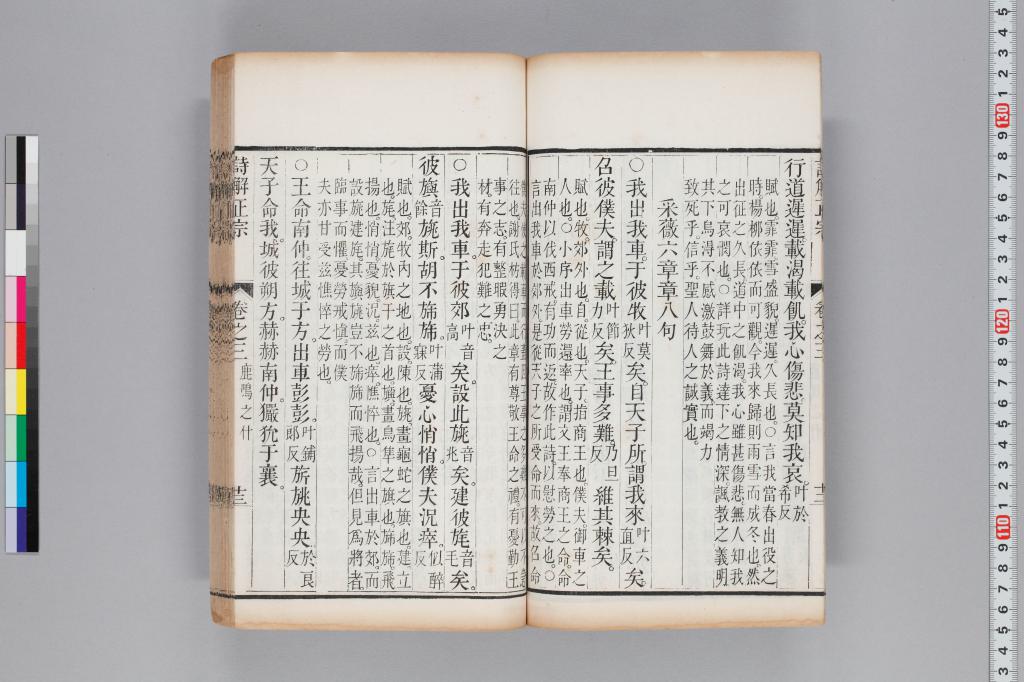 行道遲遲載渴載飢我心傷悲莫知我哀叶於希反
賦也霏霏雪盛貌遲遲久長也○言我當春出役之
時楊柳依依而可觀今我來歸則雨雪而成冬也然
出征之久長道中之飢渴我心雖甚傷悲無人知我
之可哀憫也○詳玩此詩達下之情深諷教之義明
其下烏得不感激鼓舞於義而竭力
致死乎信乎聖人待人之誠實也
采薇六章章八句
○我出我車于彼牧叶莫狄反矣自天子所謂我來叶六直反矣
召彼僕夫謂之載叶節力反矣王事多難乃旦反維其棘矣
賦也牧郊外也自從也天子指商王也僕夫御車之
人也○小序出車勞還率也謂文王奉商王之命命
南仲以伐西戎有功而返故作此詩以慰勞之也○
言出我車於郊外是從天子之所受命而來故召命
往也謝氏枋得曰此章有尊敬王命之禮有憂勤王
事之志有整暇勇決之
材有奔走犯難之忠
○我出我車于彼郊叶音高矣設此旐音兆矣建彼旄音毛矣
彼旟音餘旐斯胡不旆旆叶蒲寐反憂心悄悄僕夫況瘁似醉反
賦也郊牧內之地也設陳也旐畫龜蛇之旗也建立
也旄注旄於旗干之首也旟畫鳥隼之旗也旆旆飛
揚也悄悄憂貌況茲也瘁憔悴也○言出車於郊而
設旐建旄其旟旐豈不旆旆而飛揚哉但見爲將者
臨事而懼憂勞戒愼而僕
夫亦甘受茲憔悴之勞也
○王命南仲往城于方出車彭彭叶鋪郞反旂旐央央於良反
天子命我城彼朔方赫赫南仲玁狁于襄
詩解正宗 卷之三 鹿鳴之什 十三